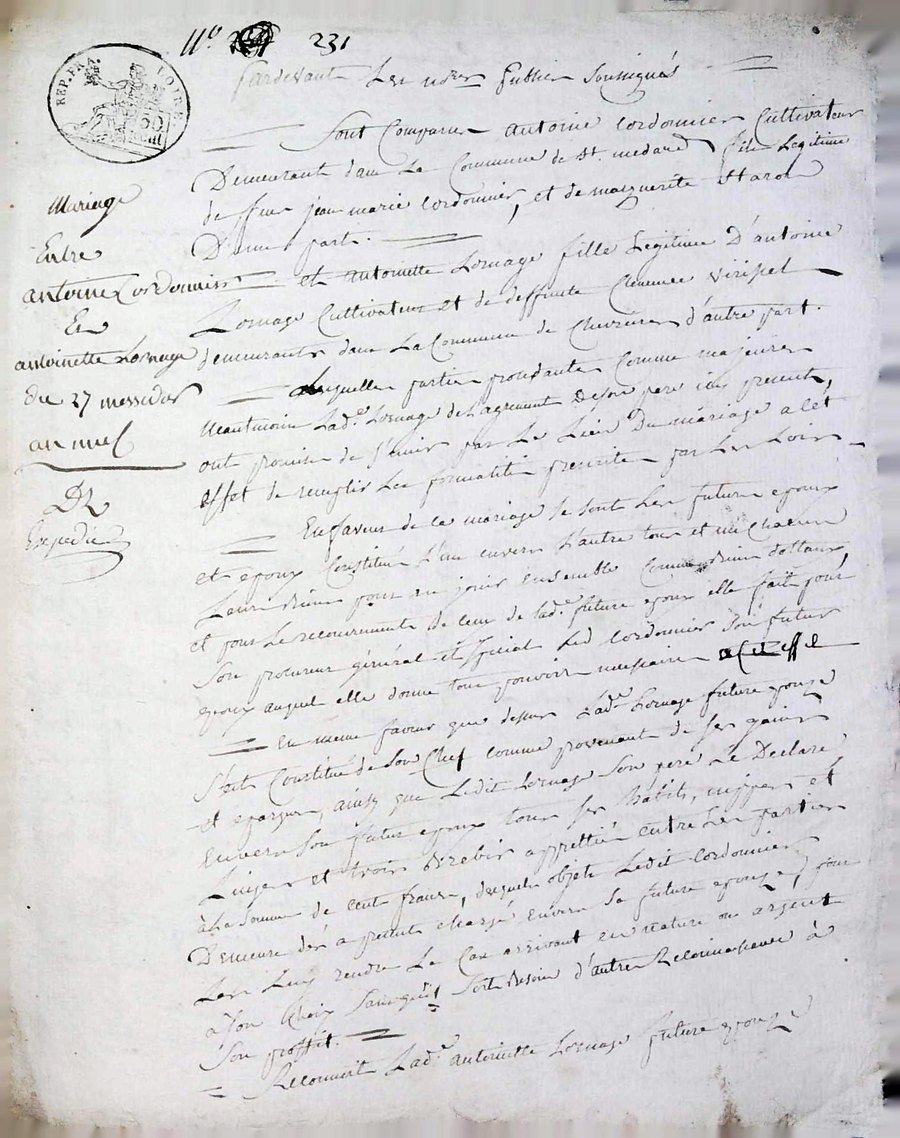 N° 231
REP. FRA. LOIRE
50 Cent
Pardevant Les nores Publics Soussignés
Mariage
Entre
antoine Cordonnier
Et
antoinette Lornage
du 27 messidor
an neuf
Dr
Expedié
Sont Comparus antoine Cordonnier Cultivateur
Demeurant dans La Commune de St. medard fils Legitime
de ffeu jean marie Cordonnier, et de marguerite
D'une part.
et antoinette Lornage fille Legitime D'antoine
Lornage Cultivateur et de deffunte Clemence Viripel
demeurants dans La Commune de Chevrieres d'autre part.
Lesquelles parties procedantes Comme majeures
Neantmoins Lade. Lornage de L'agrement De son pere icy present,
ont promis de S'unir par Le Lien Du mariage a cet
effet de remplir Les formalités prescrites par Les Loix
En ffaveur de ce mariage se sont Les futurs epoux
et epouse Constitué L'un envers L'autre tous et un Chacun
Leurs Biens pour en jouir Ensemble Comme Biens dottaux,
et pour Le recouvrement de Ceux de Lade. future epouse elle fait pour
Son procureur général et special Led Cordonnier Son futur
epoux auquel elle donne tous pouvoirs necessaires a cet effet
En meme faveur que dessus Lade. Lornage future epouze
S'est Constitué de Son Chef comme provenant de Ses gains
et epargnes, ainsy que Ledit Lornage Son pere Le Declare
Envers Son futur epoux tous Ses habits, nippes et
Linges et trois Brebis apprettiés entre Les parties
à La Somme de Cent francs, desquels objets Ledit Cordonnier
Demeure dès a present chargé envers Sa future epouze, pour
Les Luy rendre Le Cas arrivant en nature ou argent
à Son Choix Sans qu'il Soit Besoin d'autre Reconnaissance à
Son proffit.
Reconnoit Lade. antoinette Lornage future epouze